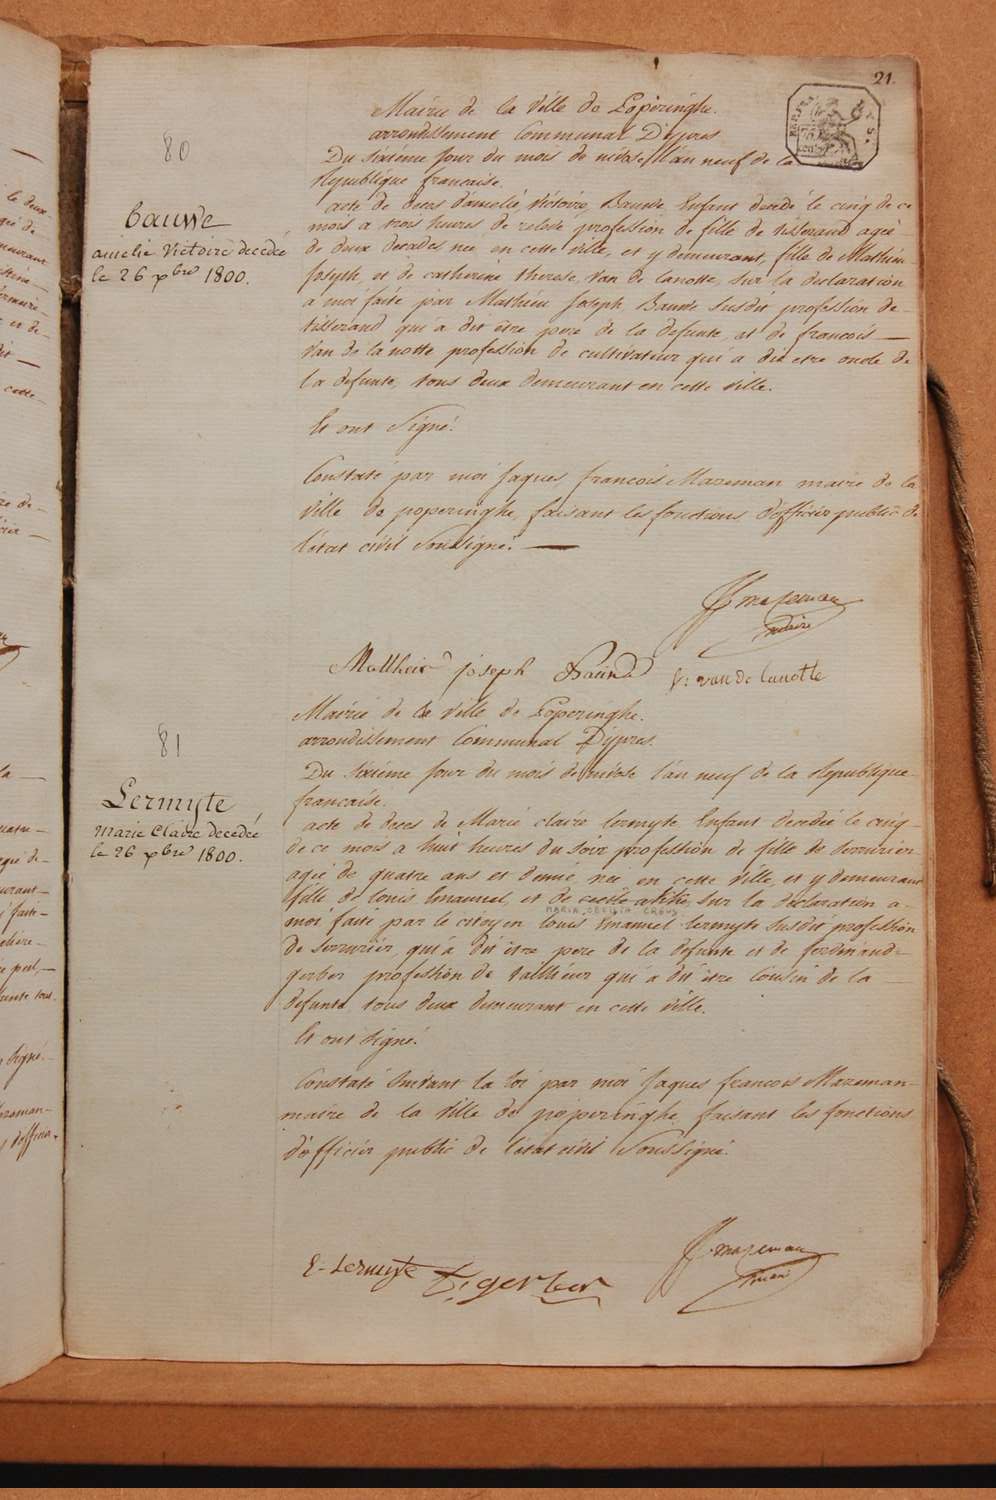 21.
Mairie de la Ville de Poperinghe.
arrondissement Communal D'ypres
Du Sixiéme Jour du mois de nivose l'an neuf de la
Republique francaise.
80
Bauwe
amelie Victoire decedée
le 26 xbre 1800.
acte de deces d'amelie Victoire Bauwe Enfant decedé le cinq de ce
mois a trois heures de relevée profession de fille de tisserand ageé
de deux decades neé en cette ville, et y demeurant, fille de Mathieu
Joseph, et de catherine therese Van de lanotte, Sur la declaration
a moi faite par Mathieu Joseph Bauwe Susdit profession de
tisserand qui a dit être pere de la defunte, et de francois
Van de lanotte profession de cultivateur qui a dit etre oncle de
la defunte, tous deux demeurant en cette ville.
Et ont Signé.
Constaté par moi Jaques francois Mazeman maire de la
Ville de poperinghe, faisant les fonctions d'officier public de
l'état civil Soussigné.
mazeman
maire
joseph f: van de lanotte
Mairie de la Ville de Poperinghe.
arrondissement Communal D'ypres.
Du Sixiéme Jour du mois de nivose l'an neuf de la Republique
francaise.
81
Lermyte
marie Claire decedée
le 26 xbre 1800.
acte de deces de Marie claire Lermyte Enfant decedée le cinq
de ce mois a huit heures du soir profession de fille de serrurier
agé de quatre ans et demie, neé en cette ville, et y demeurant
fille de louis Emanuel, et de cecile Sur la declaration a
MARIA CECILIA
moi faite par le citoyen louis Emanuel Lermyte Susdit profession
de serrurier, qui a dit être pere de la defunte et de ferdinand
gerber profession de tailleur qui a dit être Cousin de la
defunte tous deux demeurant en cette ville.
Et ont Signé.
Constaté Suivant la loi par moi Jaques francois Mazeman
maire de la Ville de poperinghe faisant les fonctions
d'officier public de l'état civil Soussigné.
E- Lermyte gerber mazeman
maire